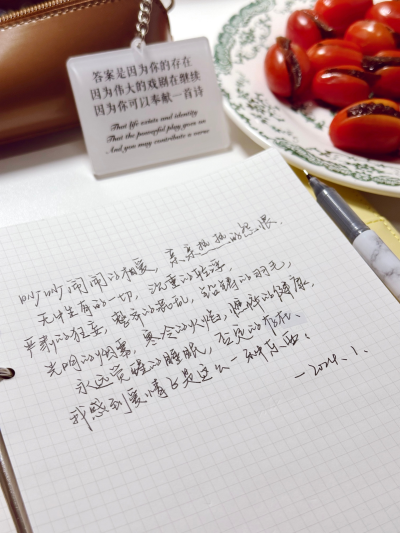 答案是因为你的存在
因为伟大的戏剧在继续
因为你可以奉献一首诗
That life exists and identity
That the powerful play goes on
And you may contribute a verse
吵吵闹闹的相爱，亲亲热热的怨恨，
无中生有的一切，沉重的轻浮，
严肃的狂妄，整齐的混乱，铅铸的羽毛，
光明的烟雾，寒冷的火焰，憔悴的健康，
永远觉醒的睡眠，否定的存在、
我感到爱情正是这么一种东西。
—2024.1.